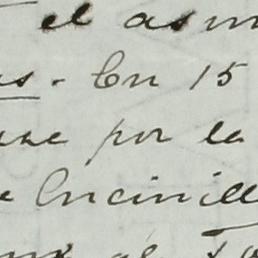 el asun
as. En 15
ase por la
e Encinill
al